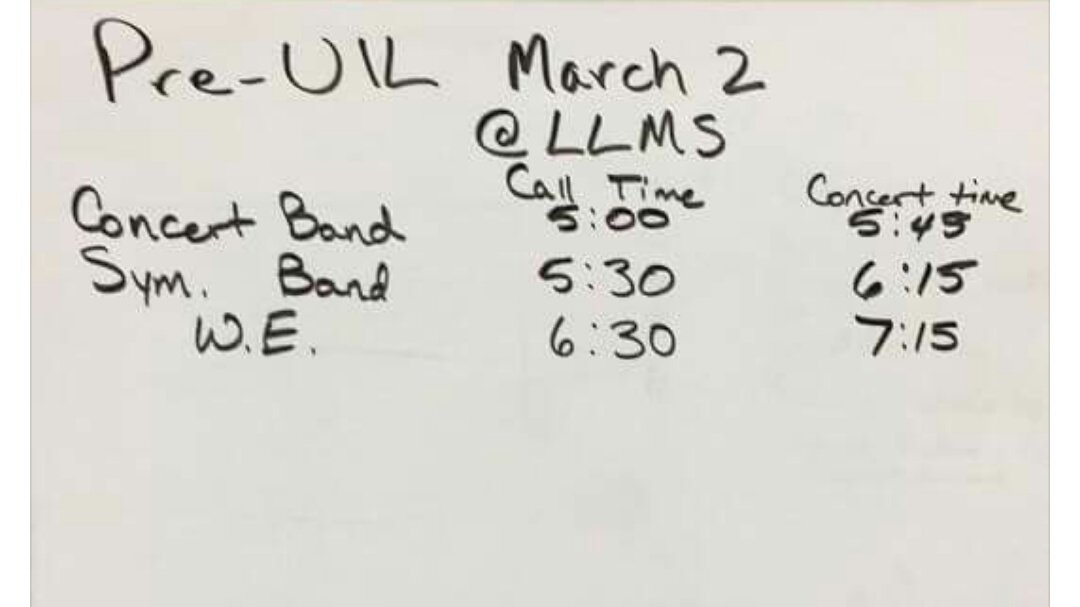 Pre-UIL March 2
@ LLMS
Call Time Concert time
Concert Band 5:00 5:45
Sym. Band 5:30 6:15
W.E. 6:30 7:15